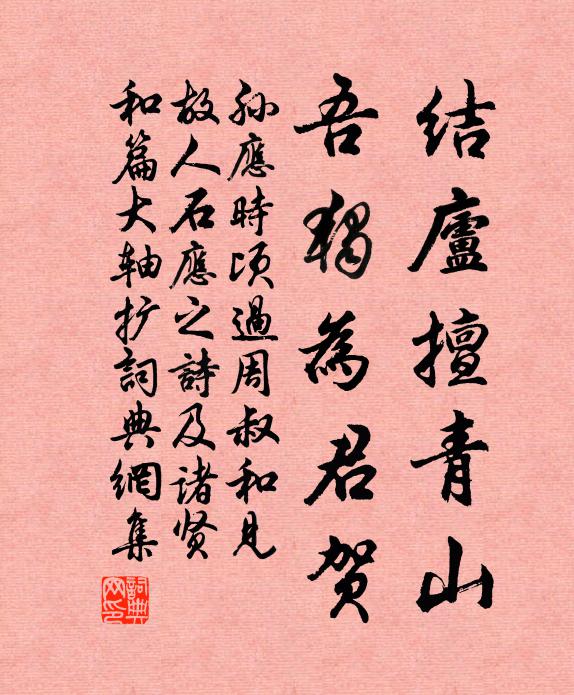 結廬擅青山
吾獨為君賀
孙應時頃過周叔和見
故人石應之詩及诸贤
和篇大軸扩詞典網集
詞典网印